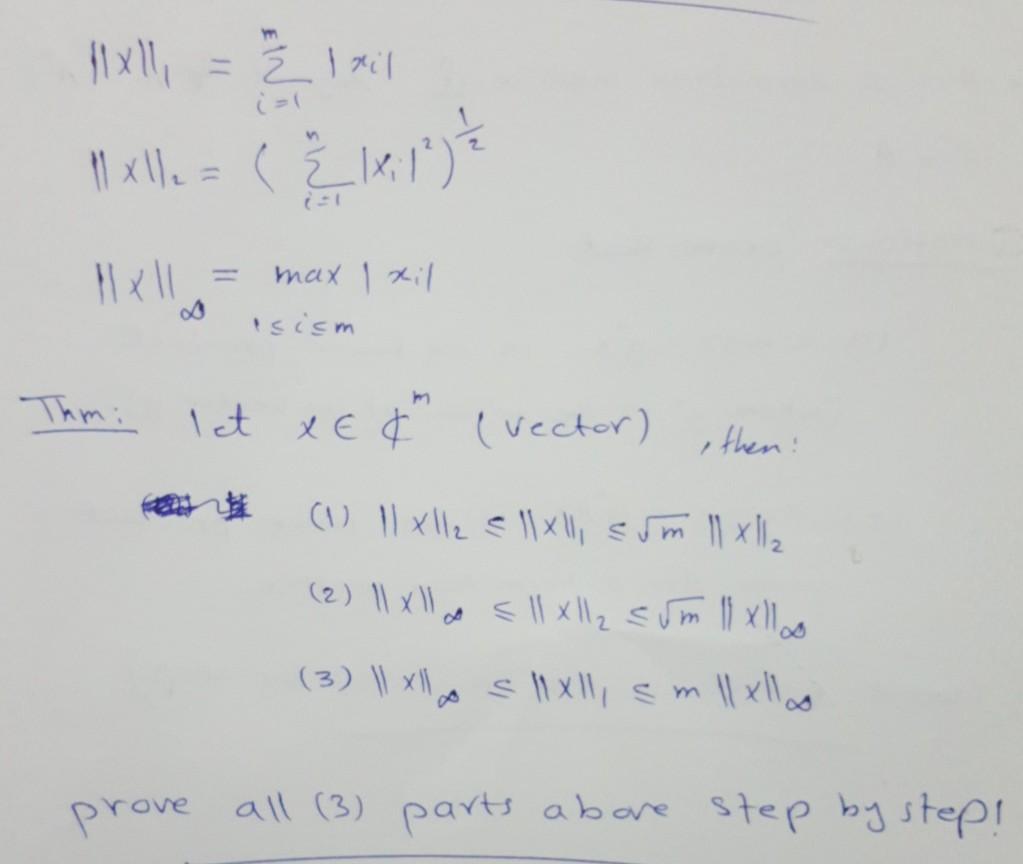 ||x||₁ = Σᵢ₌₁ᵐ |xi|
||x||₂ = ( Σᵢ₌₁ⁿ |xᵢ|² )^(1/2)
||x||∞ = max |xi|
1≤i≤m
Thm: let x ∈ ₵ᵐ (vector), then:
(1) ||x||₂ ≤ ||x||₁ ≤ √m ||x||₂
(2) ||x||∞ ≤ ||x||₂ ≤ √m ||x||∞
(3) ||x||∞ ≤ ||x||₁ ≤ m ||x||∞
prove all (3) parts above step by step!